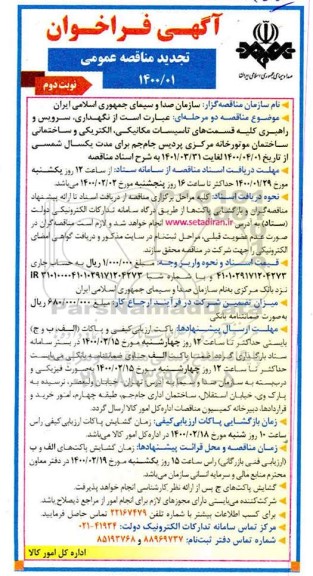 آگهی فراخوان
تجدید مناقصه عمومی
۱۴۰۰/۰۱
نوبت دوم
نام سازمان مناقصه‌گزار: سازمان صدا و سیمای جمهوری اسلامی ایران
موضوع مناقصه دو مرحله‌ای: عبارت است از نگهداری، سرویس و
راهبری کلیه قسمت‌های تاسیسات مکانیکی، الکتریکی و ساختمانی
ساختمان موتورخانه مرکزی پردیس جام‌جم برای مدت یکسال شمسی
از تاریخ ۱۴۰۰/۰۴/۰۱ لغایت ۱۴۰۱/۰۳/۳۱ به شرح اسناد مناقصه
مهلت دریافت اسناد مناقصه از سامانه ستاد: از ساعت ۱۲ روز یکشنبه
مورخ ۱۴۰۰/۰۱/۲۹ حداکثر تا ساعت ۱۶ روز پنجشنبه مورخ ۱۴۰۰/۰۲/۰۲ می‌باشد.
نحوه دریافت اسناد: کلیه مراحل برگزاری مناقصه از دریافت اسناد تا ارائه پیشنهاد
مناقصه‌گران و بازگشایی پاکت‌ها از طریق درگاه سامانه تدارکات الکترونیکی دولت
(ستاد) به آدرس www.setadiran.ir انجام خواهد شد و لازم است مناقصه‌گران در
صورت عدم عضویت قبلی، مراحل ثبت‌نام در سایت مذکور و دریافت گواهی امضای
الکترونیکی را جهت شرکت در مناقصه محقق سازند.
قیمت اسناد و نحوه واریز وجه: مبلغ ۱/۰۰۰/۰۰۰ ریال به حساب جاری
۴۱۰۱۰۲۹۱۷۱۲۰۴۲۷۳ و یا شماره شبا
نزد بانک مرکزی به‌نام سازمان صدا و سیمای جمهوری اسلامی ایران
میزان تضمین شرکت در فرآیند ارجاع کار: مبلغ ۶۸۰/۰۰۰/۰۰۰ ریال
به صورت ضمانتنامه بانکی
مهلت ارسال پیشنهادها: پاکت ارزیابی کیفی و پاکات (الف، ب و ج)
بایستی حداکثر تا ساعت ۱۲ روز چهارشنبه مورخ ۱۴۰۰/۰۲/۱۵ در بستر سامانه
ستاد بارگذاری گردد. ضمنا پاکت الف حاوی ضمانتنامه بانکی می‌بایست
حداکثر تا ساعت ۱۲ روز چهارشنبه مورخ ۱۴۰۰/۰۲/۱۵ به‌صورت فیزیکی و
دربسته به سازمان صدا و سیما به آدرس تهران، خیابان ولیعصر، نرسیده به
پارک وی، خیابان استقلال، ساختمان اداری جام‌جم، طبقه چهارم، امور خرید و
قراردادها، دبیرخانه کمیسیون مناقصات اداره کل امور کالا ارسال گردد.
زمان بازگشایی پاکات ارزیابی کیفی: زمان گشایش پاکات ارزیابی کیفی راس
ساعت ۱۰ روز شنبه مورخ ۱۴۰۰/۰۲/۱۸ در اداره کل امور کالا می‌باشد.
زمان مناقصه و محل قرائت پیشنهادها: زمان گشایش پاکت‌های الف و ب
(ارزیابی فنی بازرگانی) راس ساعت ۱۵ روز یکشنبه مورخ ۱۴۰۰/۰۲/۱۹ در دفتر معاون
محترم منابع مالی و سرمایه انسانی سازمان می‌باشد.
گشایش پاکت‌های ج پس از ارائه نظر کارشناسی انجام خواهد پذیرفت.
شرکت‌کننده می‌بایستی دارای مجوزهای لازم برای انجام امور از مراجع ذیصلاح باشد.
برای کسب اطلاعات بیشتر با شماره تلفن ۲۲۱۶۷۴۷۹ تماس حاصل فرمایید.
مرکز تماس سامانه تدارکات الکترونیک دولت: ۴۱۹۳۴-۰۲۱
شماره تماس دفتر ثبت‌نام: ۸۸۹۶۹۷۳۷ و ۸۵۱۹۳۷۶۸
اداره کل امور کالا